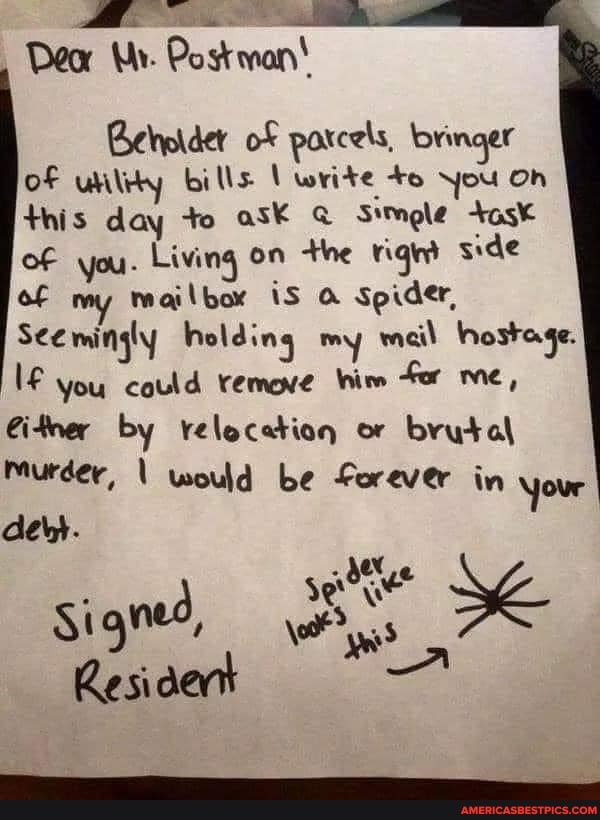 Dear Mr. Postman!
Beholder of parcels, bringer
of utility bills. I write to you on
this day to ask a simple task
of you. Living on the right side
of my mailbox is a spider,
seemingly holding my mail hostage.
If you could remove him for me,
either by relocation or brutal
murder, I would be forever in your
debt.
Signed,
Resident
Spider
looks like
this
AMERICASBESTPICS.COM